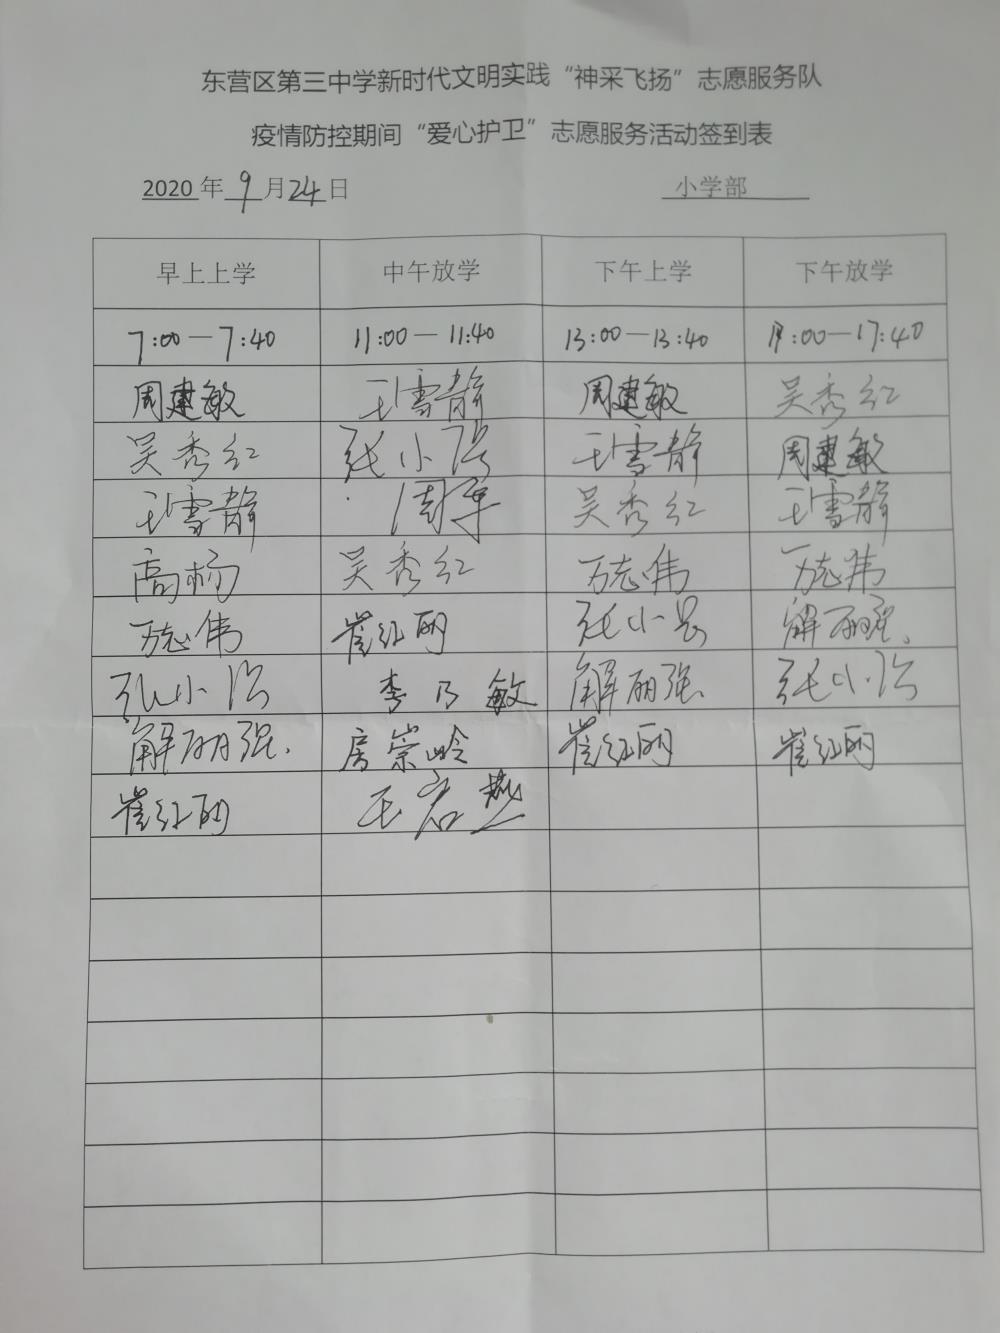 东营区第三中学新时代文明实践“神采飞扬”志愿服务队
疫情防控期间“爱心护卫”志愿服务活动签到表
2020 年 9 月 24 日 小学部
早上上学 中午放学 下午上学 下午放学
7:00—7:40 11:00—11:40 13:00—13:40 17:00—17:40
周建敏 王雪静 周建敏 吴秀红
吴秀红 张小 王雪静 周建敏
王雪静 周军 吴秀红 王雪静
高杨 吴秀红 万志伟 万志伟
万志伟 崔红丽 张小 解丽强.
张小 李乃敏 解丽强. 张小
解丽强. 房崇岭 崔红丽 崔红丽
崔红丽 王君燕